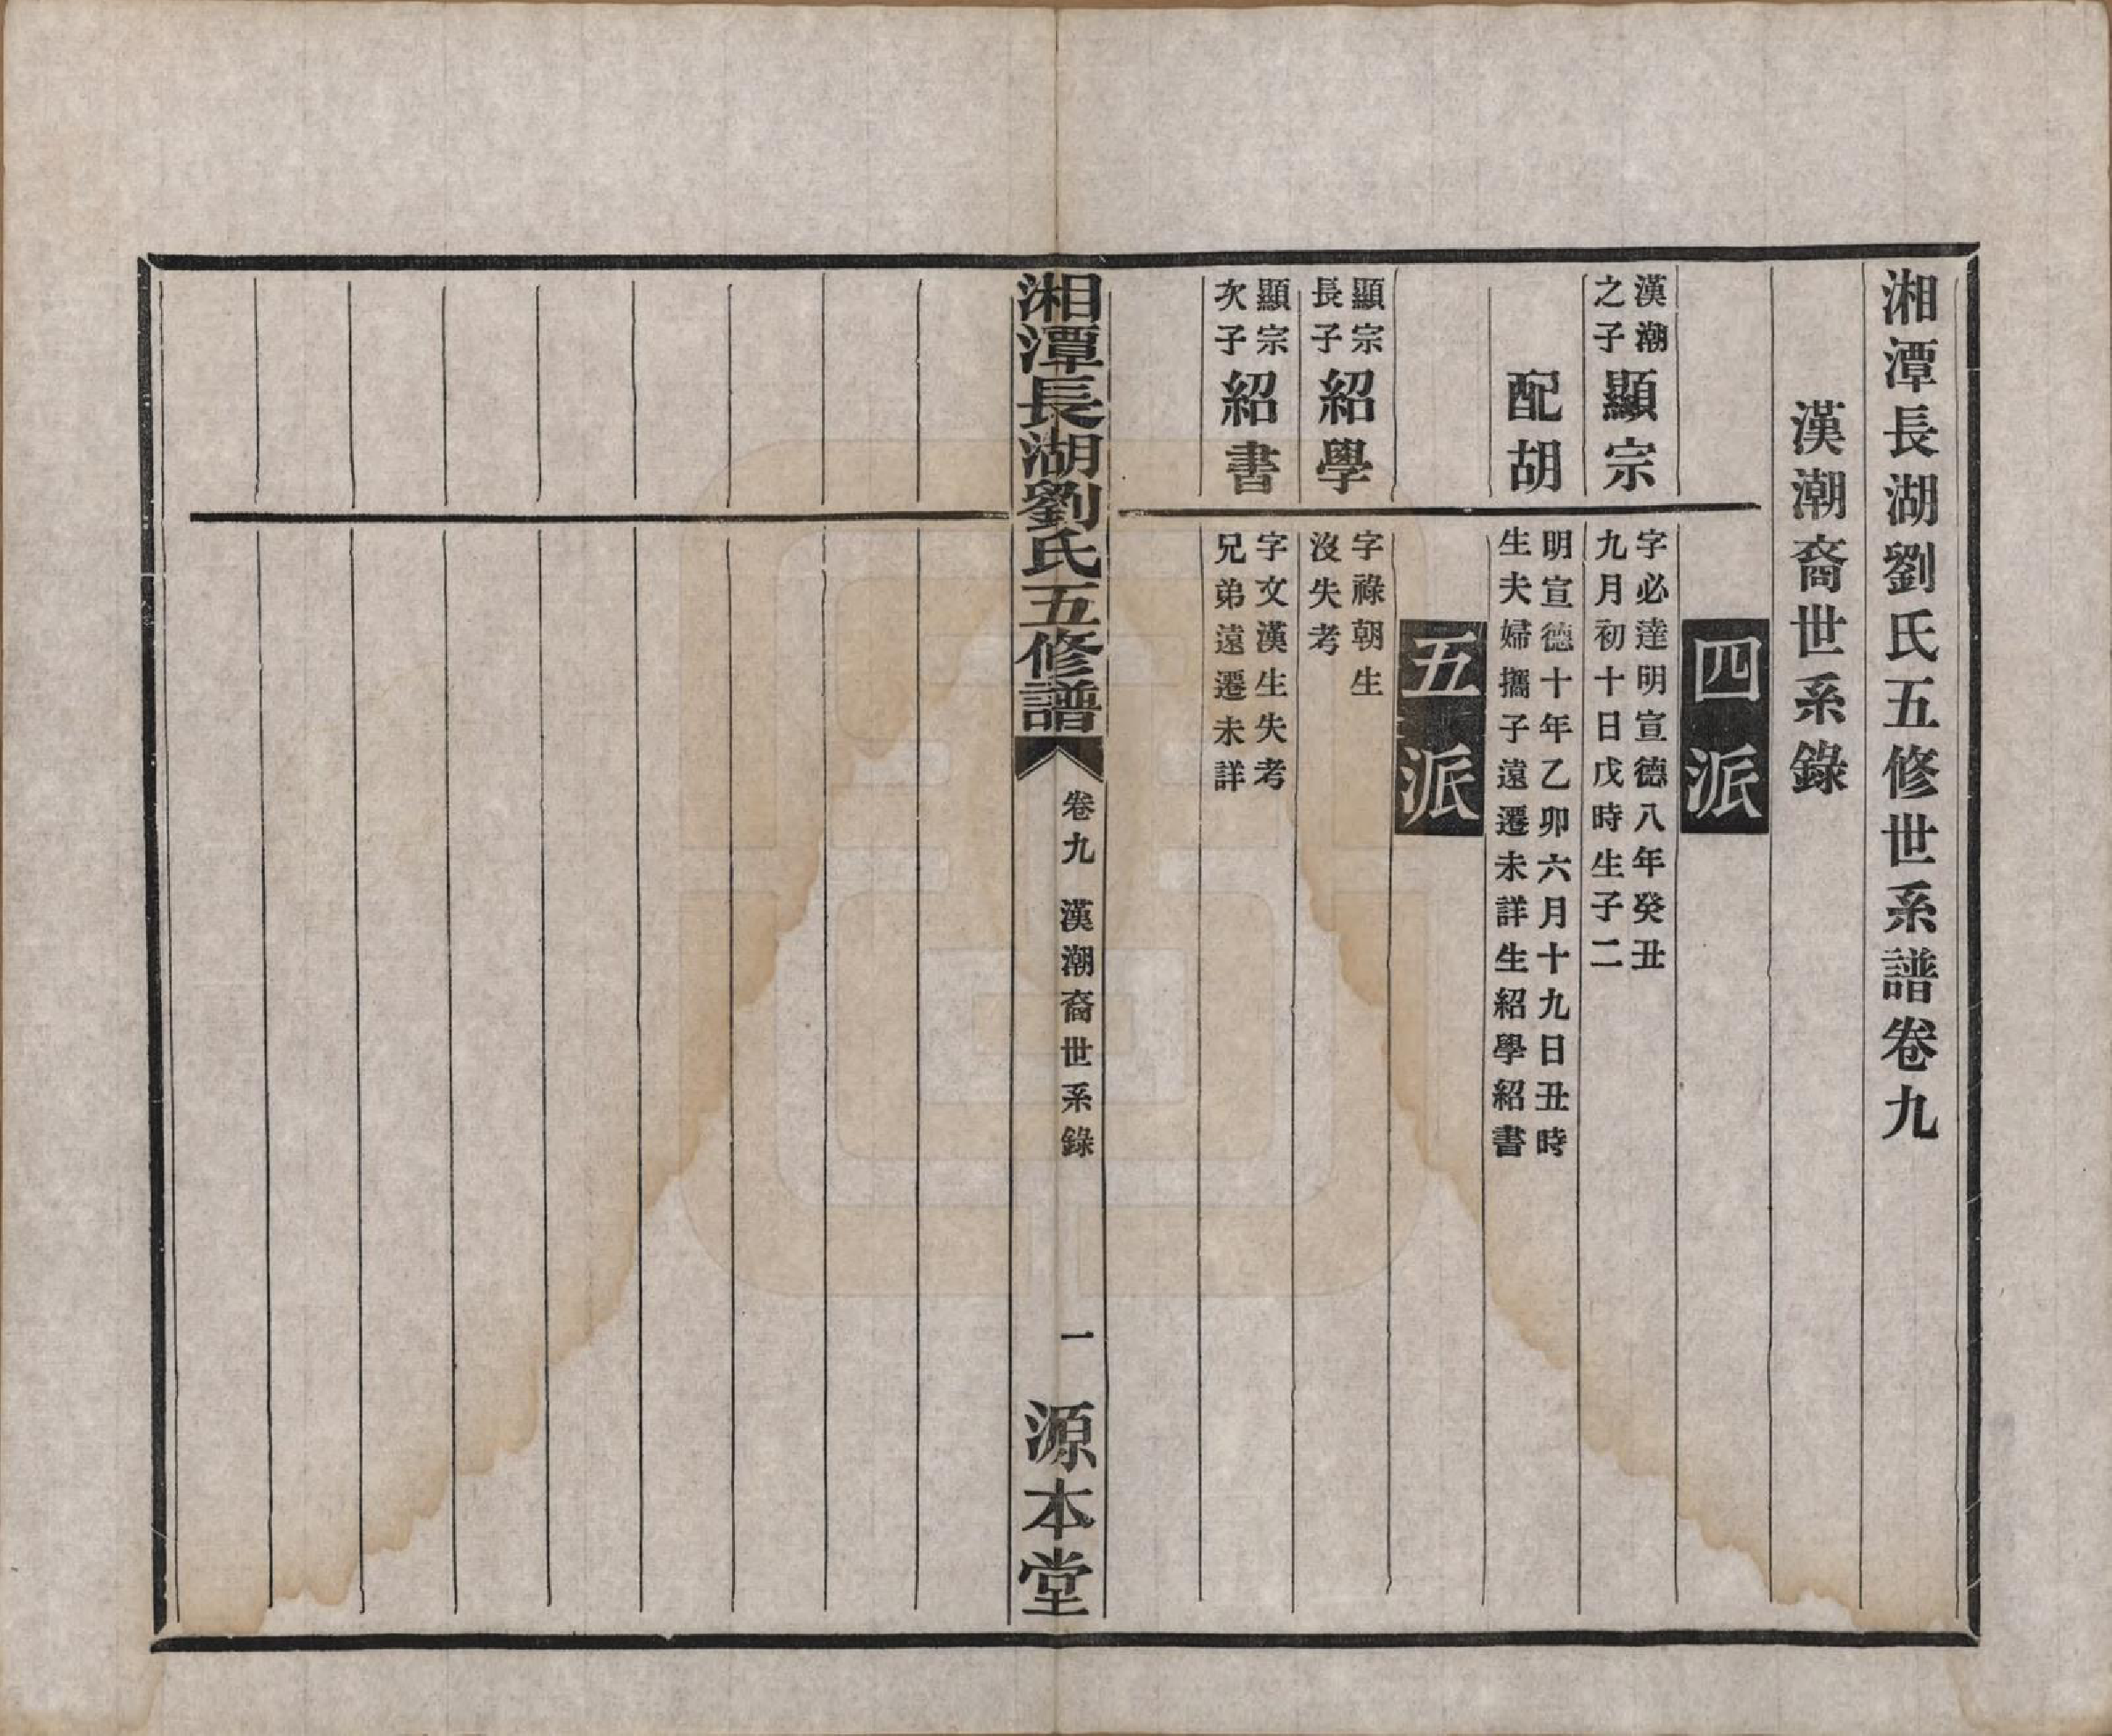 湘潭長湖劉氏五修世系譜卷九
漢潮裔世系錄
四派
漢潮
之子
顯宗
字必達明宣德八年癸丑
九月初十日戌時生子二
配胡
明宣德十年乙卯六月十九日丑時
生夫婦攜子遠遷未詳生紹學紹書
五派
顯宗
長子
紹學
字祿朝生
沒失考
顯宗
次子
紹書
字文漢生失考
兄弟遠遷未詳
湘潭長湖劉氏五修譜
卷九
漢潮裔世系錄
一
源本堂